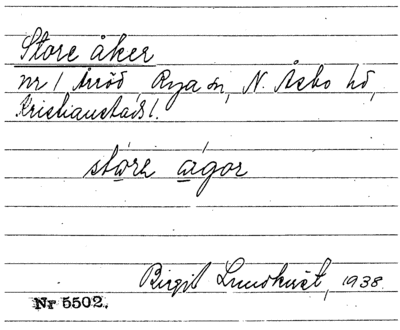 Store åker
nr 1 Arröd, Rya sn, N. Åsbo hd,
Kristianstads l.
störe ágor
Birgit Lundkvist, 1938.
Nr 5502.